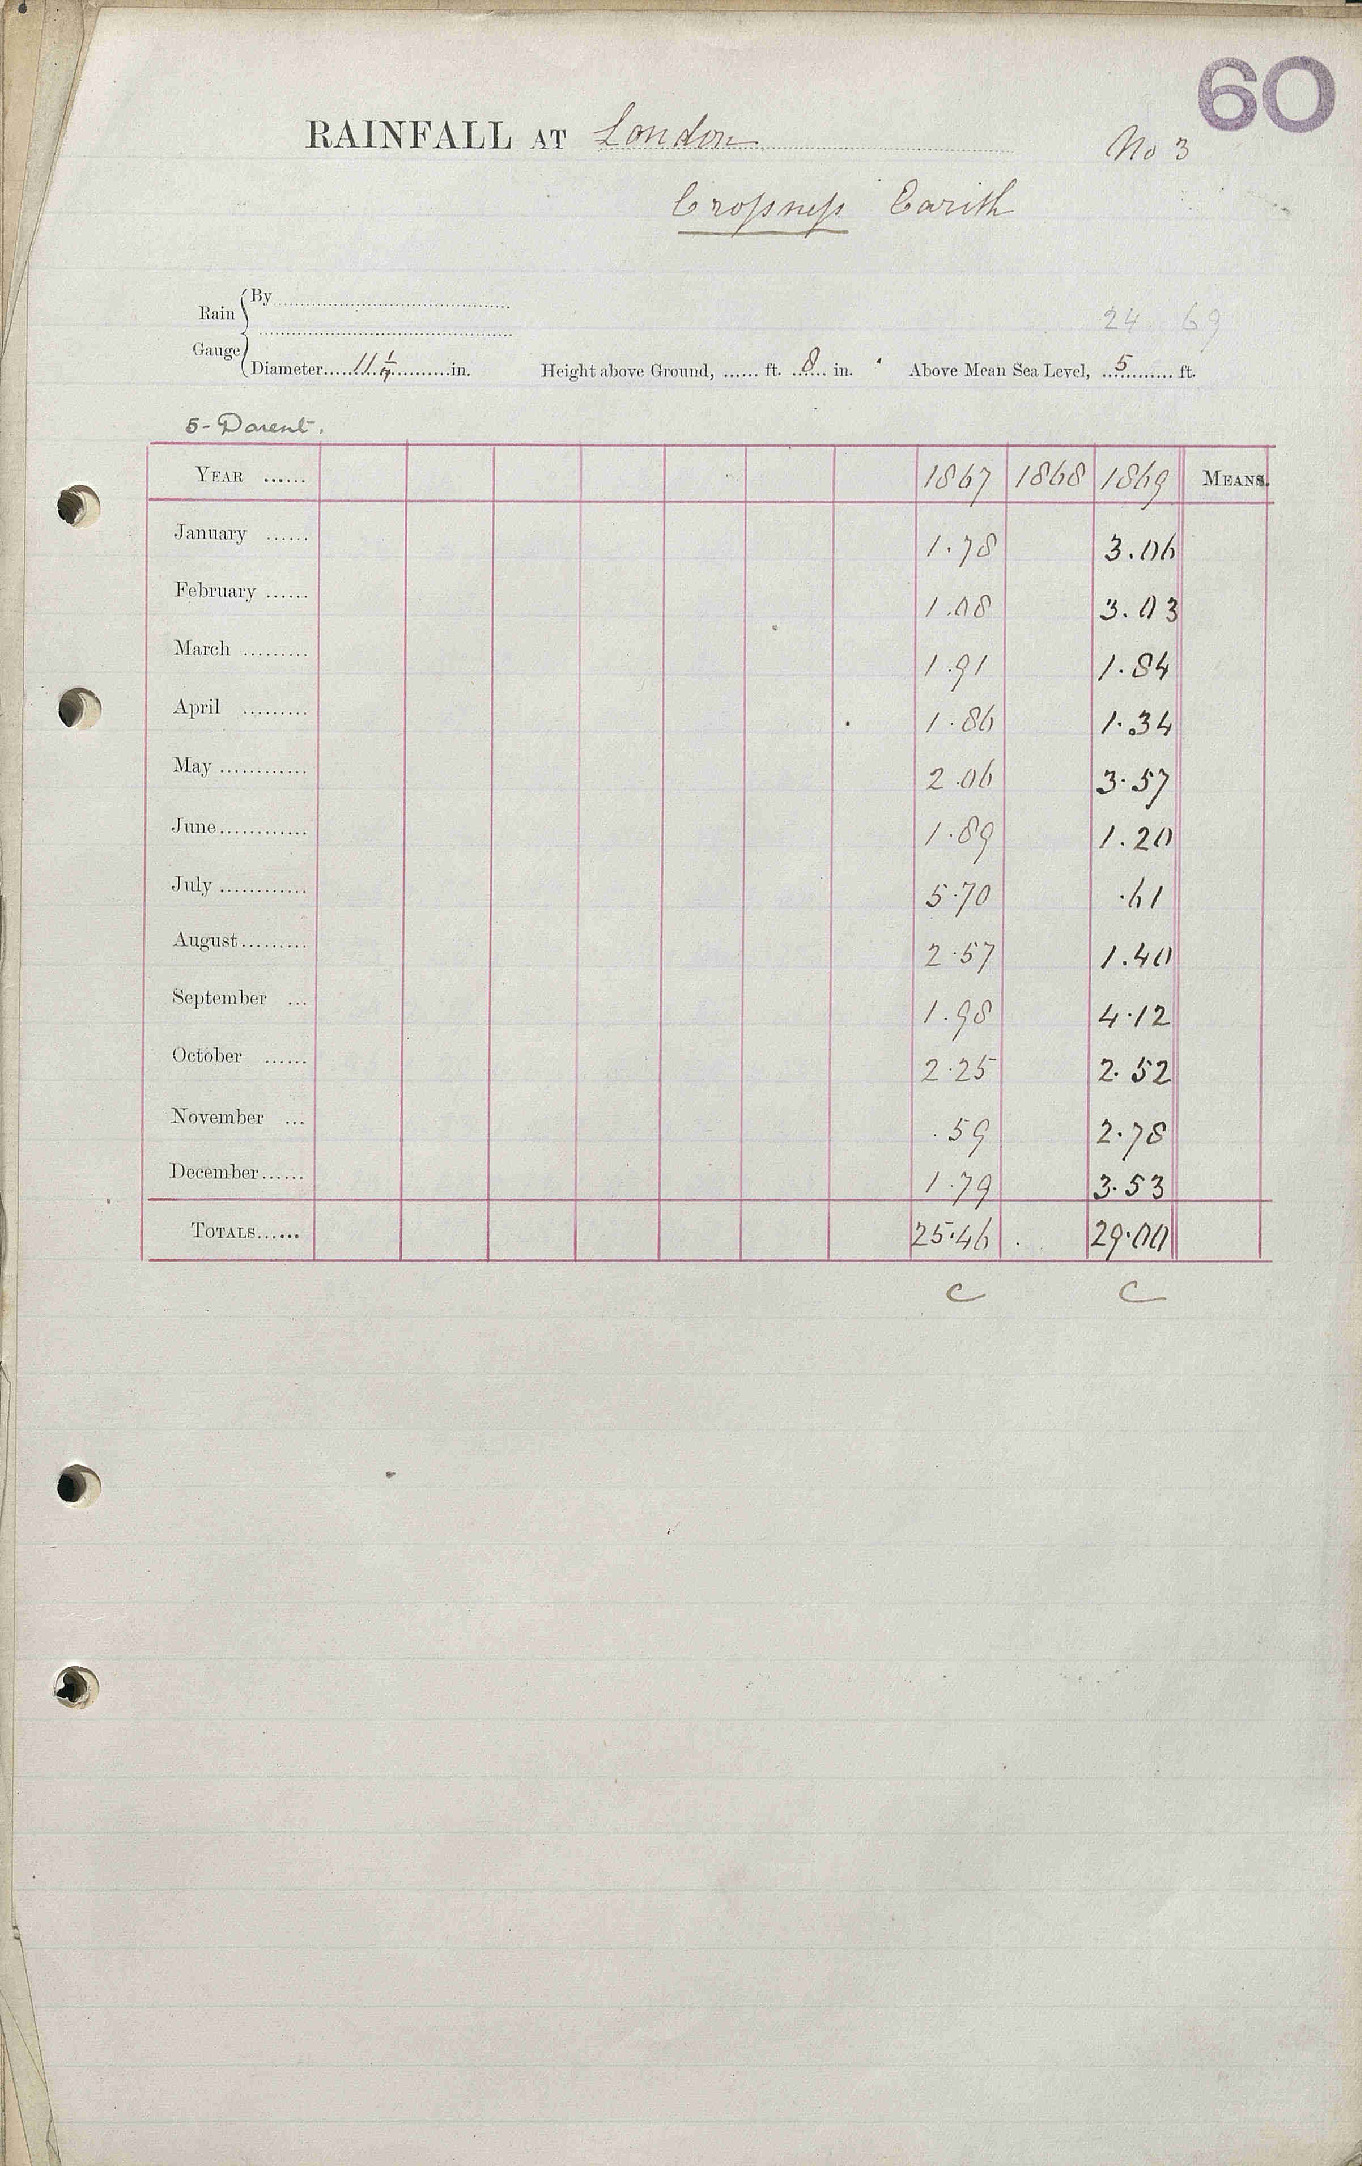 60
RAINFALL AT London
No 3
Crossness Earith
Rain Gauge
By
24 69
Diameter 11 1/7 in. Height above Ground, ...... ft. 8 in. Above Mean Sea Level, 5 ft.
5 - Darent.
YEAR ...... 1867 1868 1869 MEANS.
January ...... 1.78 3.06
February ...... 1.08 3.03
March ......... 1.91 1.84
April ......... 1.86 1.34
May ............ 2.06 3.57
June ............ 1.89 1.20
July ............ 5.70 .61
August ......... 2.57 1.40
September ... 1.98 4.12
October ...... 2.25 2.52
November ... .59 2.78
December ...... 1.79 3.53
TOTALS ...... 25.46 29.00
C C